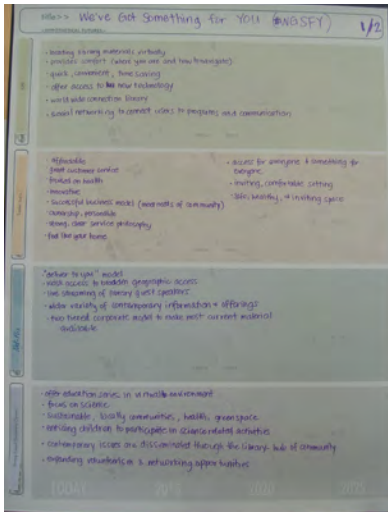 title>> We've Got Something for YOU (WGSFY)
1/2
• library materials virtually
• provides comfort (where you are and how to navigate)
• quick, convenient, time saving
• offer access to new technology
• world wide connection library
• social networking to connect users to programs and communication
• affordable
great customer service
• focused on health
• innovative
• successful business model (meet needs of community)
• ownership, personable
• strong, clear service philosophy
• feel like your home
• access for everyone & something for
everyone
• inviting, comfortable setting
• safe, healthy, & inviting space
"deliver to you" model
• access to broaden geographic access
• live streaming of library guest speakers
• wider variety of contemporary information & offerings
• two tiered corporate model to make most current material
available
• offer education series in virtual environment
• focus on science
• sustainable, locally communities, health, green space
• enticing children to participate in science related activities
• contemporary issues are disseminated through the library - hub of community
• expanding volunteerism & networking opportunities
TODAY 2015 2020 2025